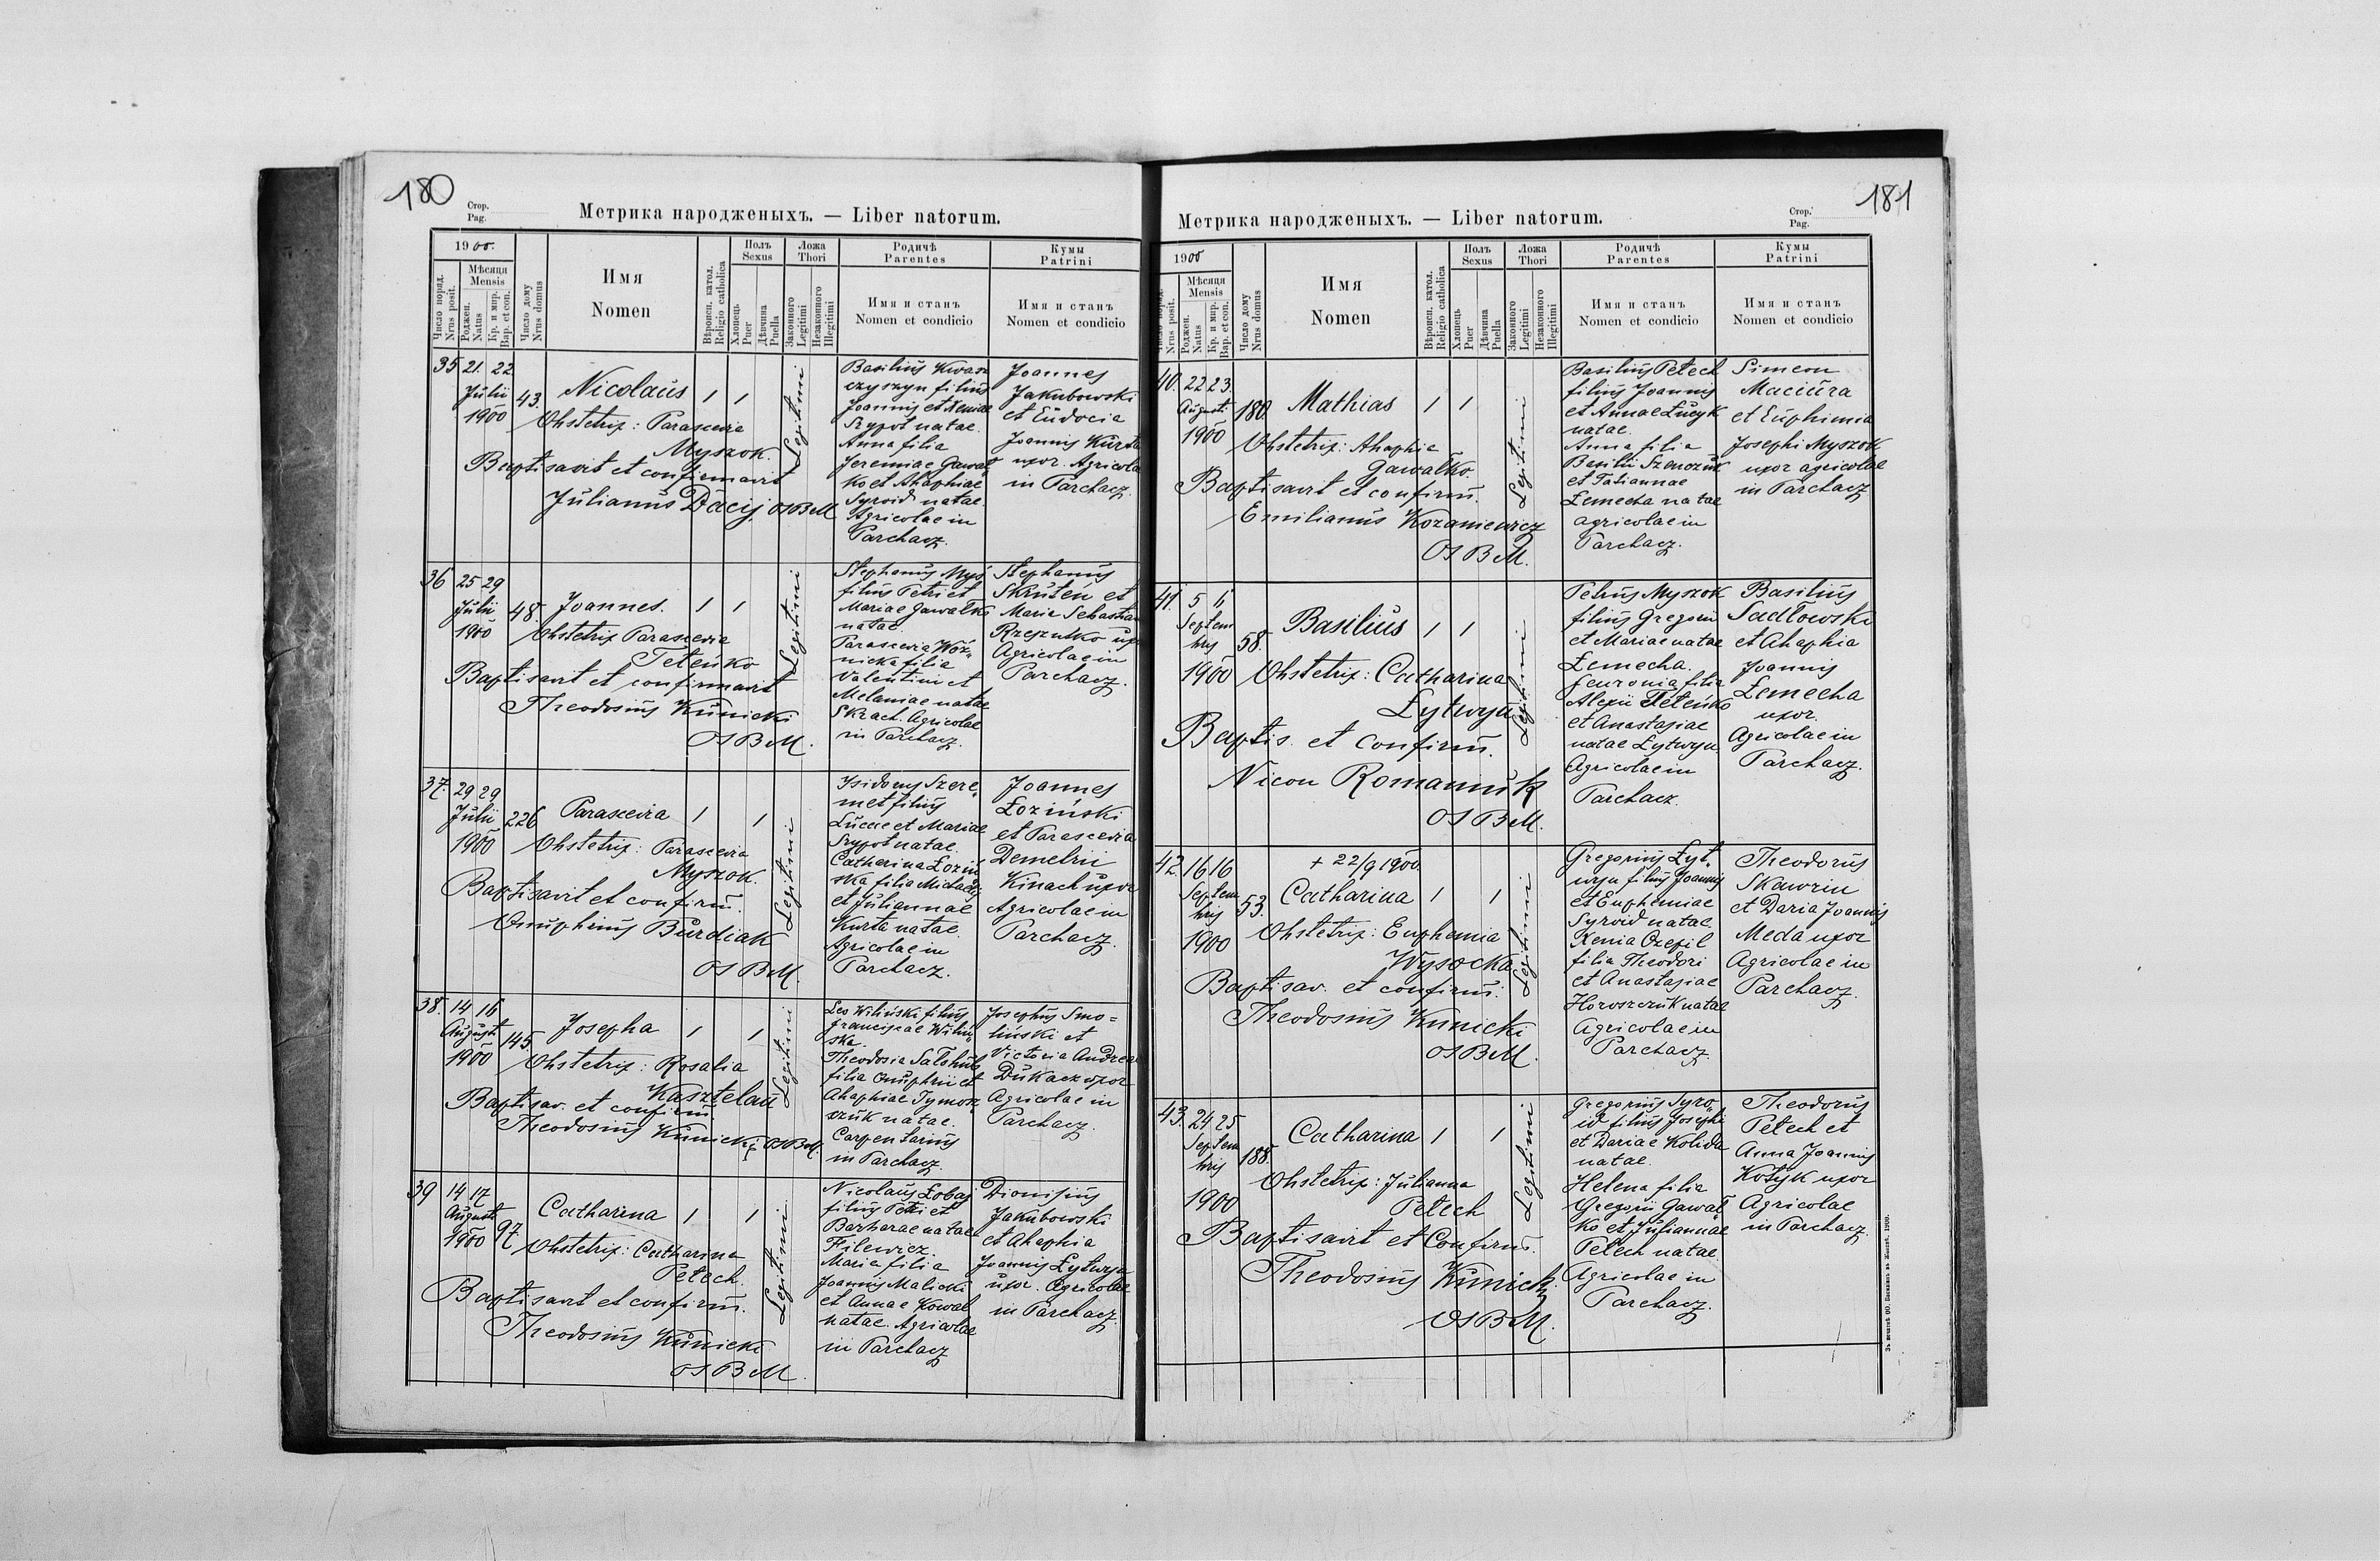 180
Стор.
Pag.
Метрика народженыхъ. — Liber natorum.
1900.
Число поряд.
Nrus posit.
Мѣсяця
Mensis
Роджен.
Natus
Кр. и мир.
Bap. et con.
Число дому
Nrus domus
Имя
Nomen
Вѣроисп. катол.
Religio catholica
Полъ
Sexus
Хлопець
Puer
Дѣвчина
Puella
Ложа
Thori
Законного
Legitimi
Незаконного
Illegitimi
Родичѣ
Parentes
Имя и станъ
Nomen et condicio
Кумы
Patrini
Имя и станъ
Nomen et condicio
35 21. 22
Julii
1900
43.
Nicolaus
Obstetrix: Parascevia
Myszok.
Baptisavit et confirmavit
Julianus Dacij, OSBM
Legitimi
Basilius Kwasz
czyszyn filius
Joannis et Xeniae
Szypot natae.
Anna filia
Jeremiae Gawał
ko et Ahaphiae
Syroid natae.
Agricolae in
Parchacz.
Joannes
Jakubowski
et Eudocia
Joannis Kurta
uxor. Agricolae
in Parchacz.
36 25 29
Julii
1900
48.
Joannes.
Obstetrix Parascevia
Teteńko
Baptisavit et confirmavit
Theodosius Kunicki
OSBM.
Legitimi
Stephanus Myś
filius Petri et
Mariae Gawałko
natae
Parascevia Woź
nicka filia
Valentini et
Melaniae natae
Skract. Agricolae
in Parchacz.
Stephanus
Skruteń et
Maria Sebastian
Rzeszutko uxor
Agricolae in
Parchacz.
37. 29 29
Julii
1900
226
Parascevia
Obstetrix: Parascevia
Myszok.
Baptisavit et confirm.
Onuphrius Burdiak
OSBM.
Legitimi
Isidorus Szere
met filius
Lucae et Mariae
Szypot natae.
Catharina Łoziń
ska filia Michaelis
et Juliannae
Kurta natae.
Agricolae in
Parchacz.
Joannes
Łoziński
et Parascevia
Demetrii
Kinach uxor
Agricolae in
Parchacz.
38. 14 16
Augusti
1900
145.
Josepha
Obstetrix: Rosalia
Kasztelan
Baptisav. et confirm.
Theodosius Kunicki, OSBM.
Legitimi
Leo Wiliński filius
Franciscae Wiliń
ska.
Theodosia Sałohub
filia Onuphrii et
Ahaphiae Tymosz
czuk natae.
Carpentarius
in Parchacz.
Josephus Smo=
liński et
Victoria Andreae
Dukacz uxor
Agricolae in
Parchacz.
39 14 17
Augusti
1900
97
Catharina
Obstetrix: Catharina
Petech.
Baptisavit et confirm.
Theodosius Kunicki
OSBM.
Legitimi
Nicolaus Łobaj
filius Petri et
Barbarae natae
Filewicz.
Maria filia
Joannis Malicki
et Annae Kowal
natae. Agricolae
in Parchacz
Dionisius
Jakubowski
et Ahaphia
Joannis Łytwyn
uxor. Agricolae
in Parchacz.
181
Стор.
Pag.
Метрика народженыхъ. — Liber natorum.
1900
Число поряд.
Nrus posit.
Мѣсяця
Mensis
Роджен.
Natus
Кр. и мир.
Bap. et con.
Число дому
Nrus domus
Имя
Nomen
Вѣроисп. катол.
Religio catholica
Полъ
Sexus
Хлопець
Puer
Дѣвчина
Puella
Ложа
Thori
Законного
Legitimi
Незаконного
Illegitimi
Родичѣ
Parentes
Имя и станъ
Nomen et condicio
Кумы
Patrini
Имя и станъ
Nomen et condicio
40. 22 23.
Augusti
1900
180.
Mathias
Obstetrix: Ahaphia
Gawałko.
Baptisavit et confirm.
Emilianus Kozaniewicz
OSBM.
Legitimi
Basilius Petech
filius Joannis
et Annae Łucyk
natae.
Anna filia
Basilii Szewczuk
et Tatiannae
Łemecha natae
agricolae in
Parchacz.
Simeon
Maciura
et Euphimia
Josephi Myszok
uxor agricolae
in Parchacz
41. 5 6
Septem
bris
1900
58.
Basilius
Obstetrix: Catharina
Łytwyn
Baptis. et confirm.
Nicon Romanuk
OSBM.
Legitimi
Petrus Myszok
filius Gregorii
et Mariae natae
Łemecha.
Fewronia filia
Alexii Teteńko
et Anastasiae
natae Łytwyn
Agricolae in
Parchacz.
Basilius
Sadłowski
et Ahaphia
Joannis
Łemecha
uxor.
Agricolae in
Parchacz.
42. 16 16
Septem
bris
1900
53.
+ 22/9 1900.
Catharina
Obstetrix: Euphemia
Wysocka
Baptisav. et confirm.
Theodosius Kunicki
OSBM.
Legitimi
Gregorius Łyt
wyn filius Joannis
et Euphemiae
Syroid natae.
Xenia Czepil
filia Theodori
et Anastasiae
Horoszczuk natae
Agricolae in
Parchacz.
Theodorus
Skawrin
et Daria Joannis
Meda uxor
Agricolae in
Parchacz.
43. 24 25
Septem
bris
1900
188.
Catharina
Obstetrix: Julianna
Petech
Baptisavit et Confirm.
Theodosius Kunicki
OSBM.
Legitimi
Gregorius Syro
id filius Josephi
et Dariae Kolida
natae.
Helena filia
Gregorii Gawał
ko et Juliannae
Petech natae
Agricolae in
Parchacz.
Theodorus
Petech et
Anna Joannis
Kotyk uxor
Agricolae
in Parchacz.
Зъ печатнѣ ОО. Василіянъ въ Жовквѣ. 1900.